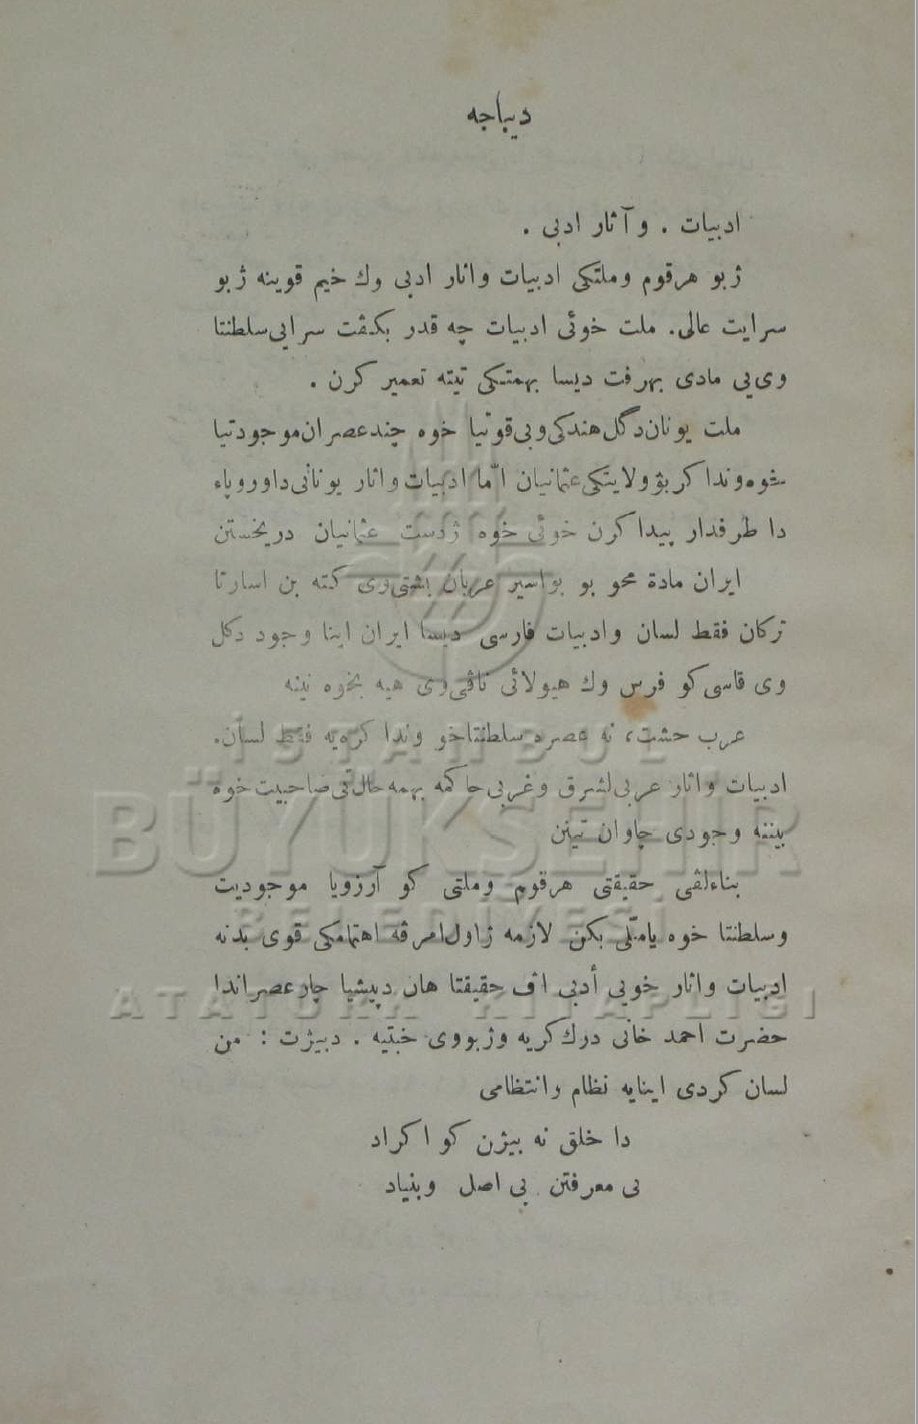 دیباجه
ادبیات . و آثار ادبی .
ژبو هرقوم وملتكی ادبیات واثار ادبی وك خیم قوینه ژبو
سرایت عالی. ملت خوئی ادبیات چه قدر بكڤت سرایی سلطنتا
وی یی مادی بهرفت دیسا بهمتكی تیته تعمیر كرن .
ملت یونان دگل هندكی وبی قوتیا خوه چند عصران موجودتیا
خوه وندا كر بۆ ولایتكی عثمانیان امّا ادبیات واثار یونانی داوروپاء
دا طرفدار پیدا كرن خوئی خوه ژدست عثمانیان دریخستن
ایران مادة محو بو بواسیر عربان پشتی وی كته بن اسارتا
تركان فقط لسان وادبیات فارسی دیسا ایران اینا وجود دكل
وی قاسی كو فرس وك هیولائی ناڤی وی هیه بخوه نینه
عرب حشت، نه عصره سلطنتاخو وندا كره یه فقط لسان.
ادبیات واثار عربی لشرق وغربی حاكمه بهمه حال ڤی صاحبیت خوه
بیننه وجودی چاوان تینن
بناءلڤی حقیقتی هرقوم وملتی كو آرزویا موجودیت
وسلطنتا خوه یاملّی بكن لازمه ژاول امرڤه اهتمامكی قوی بدنه
ادبیات واثار خویی أدبی اڤ حقیقتا هان دپیشیا چار عصراندا
حضرت احمد خانی درك كریه وژبووی خبتیه . دبیژت : من
لسان كردی اینایه نظام وانتظامی
دا خلق نه بیژن كو اكراد
بی معرفتن بی اصل وبنیاد
İSTANBUL
BÜYÜKŞEHİR
BELEDİYESİ
ATATÜRK KİTAPLIĞI